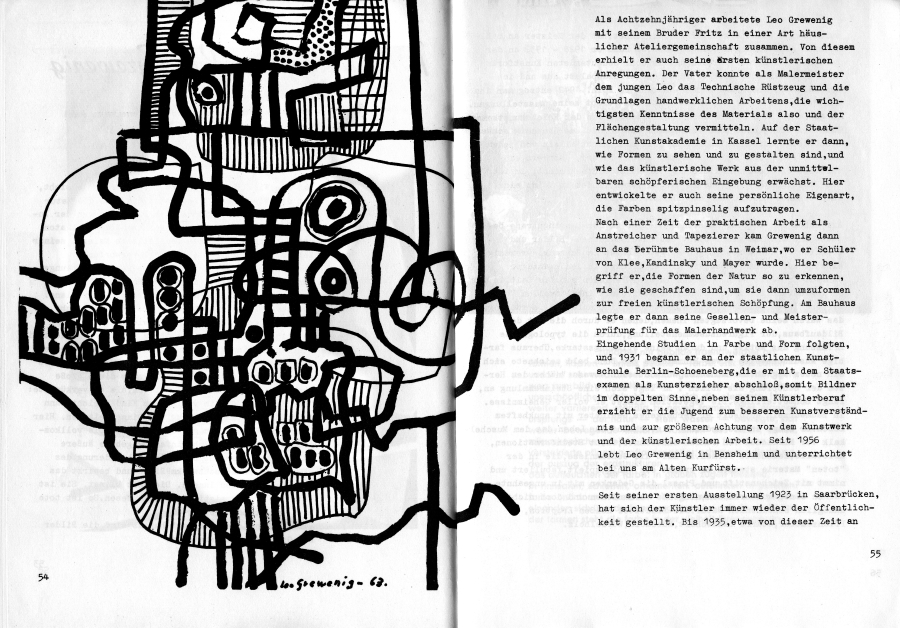 Leo Grewenig - 63.
54
Als Achtzehnjähriger arbeitete Leo Grewenig
mit seinem Bruder Fritz in einer Art häus-
licher Ateliergemeinschaft zusammen. Von diesem
erhielt er auch seine ersten künstlerischen
Anregungen. Der Vater konnte als Malermeister
dem jungen Leo das Technische Rüstzeug und die
Grundlagen handwerklichen Arbeitens,die wich-
tigsten Kenntnisse des Materials also und der
Flächengestaltung vermitteln. Auf der Staat-
lichen Kunstakademie in Kassel lernte er dann,
wie Formen zu sehen und zu gestalten sind,und
wie das künstlerische Werk aus der unmittel-
baren schöpferischen Eingebung erwächst. Hier
entwickelte er auch seine persönliche Eigenart,
die Farben spitzpinselig aufzutragen.
Nach einer Zeit der praktischen Arbeit als
Anstreicher und Tapezierer kam Grewenig dann
an das berühmte Bauhaus in Weimar,wo er Schüler
von Klee,Kandinsky und Mayer wurde. Hier be-
griff er,die Formen der Natur so zu erkennen,
wie sie geschaffen sind,um sie dann umzuformen
zur freien künstlerischen Schöpfung. Am Bauhaus
legte er dann seine Gesellen- und Meister-
prüfung für das Malerhandwerk ab.
Eingehende Studien in Farbe und Form folgten,
und 1931 begann er an der staatlichen Kunst-
schule Berlin-Schoeneberg,die er mit dem Staats-
examen als Kunsterzieher abschloß,somit Bildner
im doppelten Sinne,neben seinem Künstlerberuf
erzieht er die Jugend zum besseren Kunstverständ-
nis und zur größeren Achtung vor dem Kunstwerk
und der künstlerischen Arbeit. Seit 1956
lebt Leo Grewenig in Bensheim und unterrichtet
bei uns am Alten Kurfürst.
Seit seiner ersten Ausstellung 1923 in Saarbrücken,
hat sich der Künstler immer wieder der Öffentlich-
keit gestellt. Bis 1935,etwa von dieser Zeit an
55